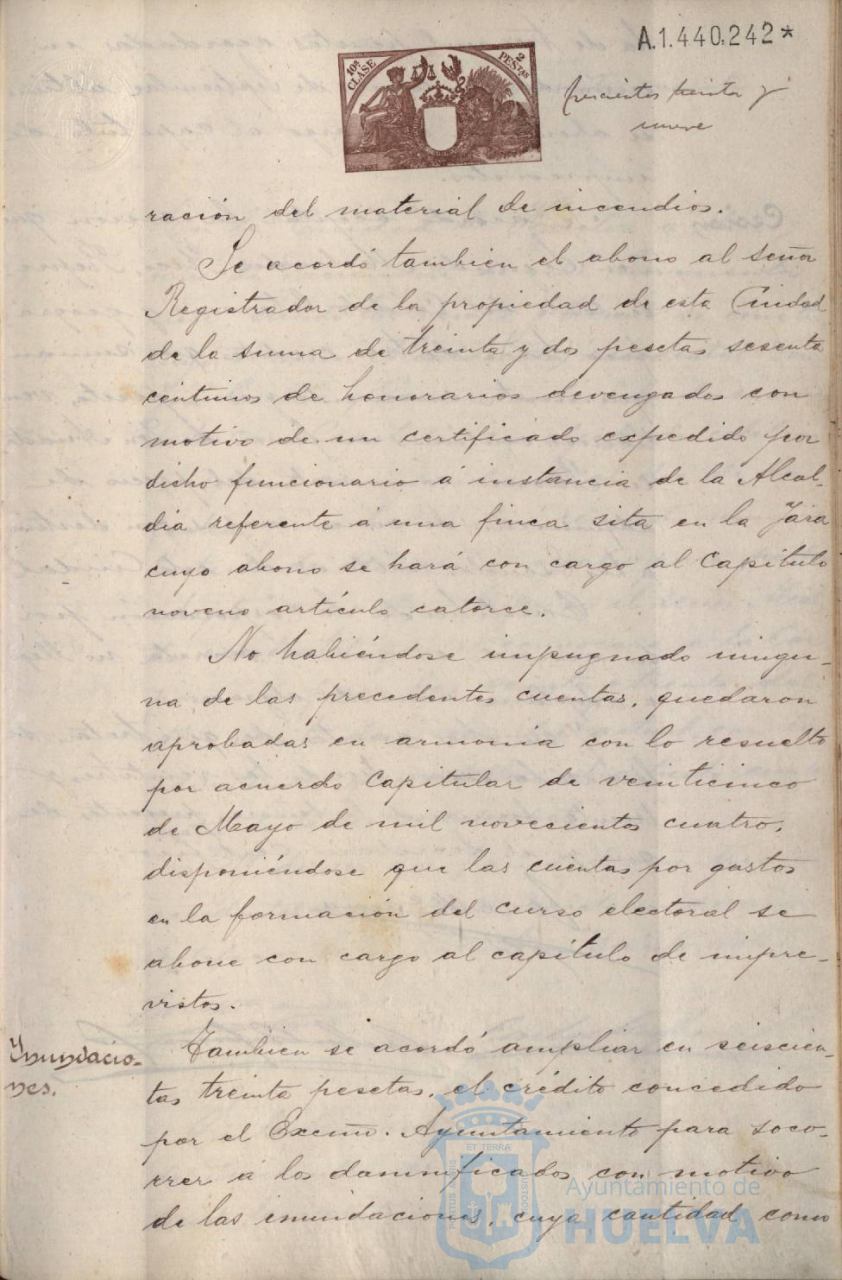 A.1.440.242*
10ª CLASE
2 PESTAS
trescientos treinta y
nueve
ración del material de incendios.
Se acordó tambien el abono al señor
Registrador de la propiedad de esta Ciudad
de la suma de treinta y dos pesetas sesenta
céntimos de honorarios devengados con
motivo de un certificado expedido por
dicho funcionario á instancia de la Alcal-
dia referente á una finca sita en la Jara
cuyo abono se hará con cargo al Capítulo
noveno artículo catorce.
No habiéndose impugnado ningu-
na de las precedentes cuentas, quedaron
aprobadas en armonia con lo resuelto
por acuerdo Capitular de veinticinco
de Mayo de mil novecientos cuatro,
disponiéndose que las cuentas por gastos
en la formación del curso electoral se
abone con cargo al capítulo de impre-
vistos.
Inundacio-
nes.
Tambien se acordó ampliar en seiscien-
tas treinta pesetas, el crédito concedido
por el Excmo. Ayuntamiento para soco-
rrer á los damnificados con motivo
de las inundaciones, cuya cantidad como
ET TERRÆ
Ayuntamiento de
HUELVA